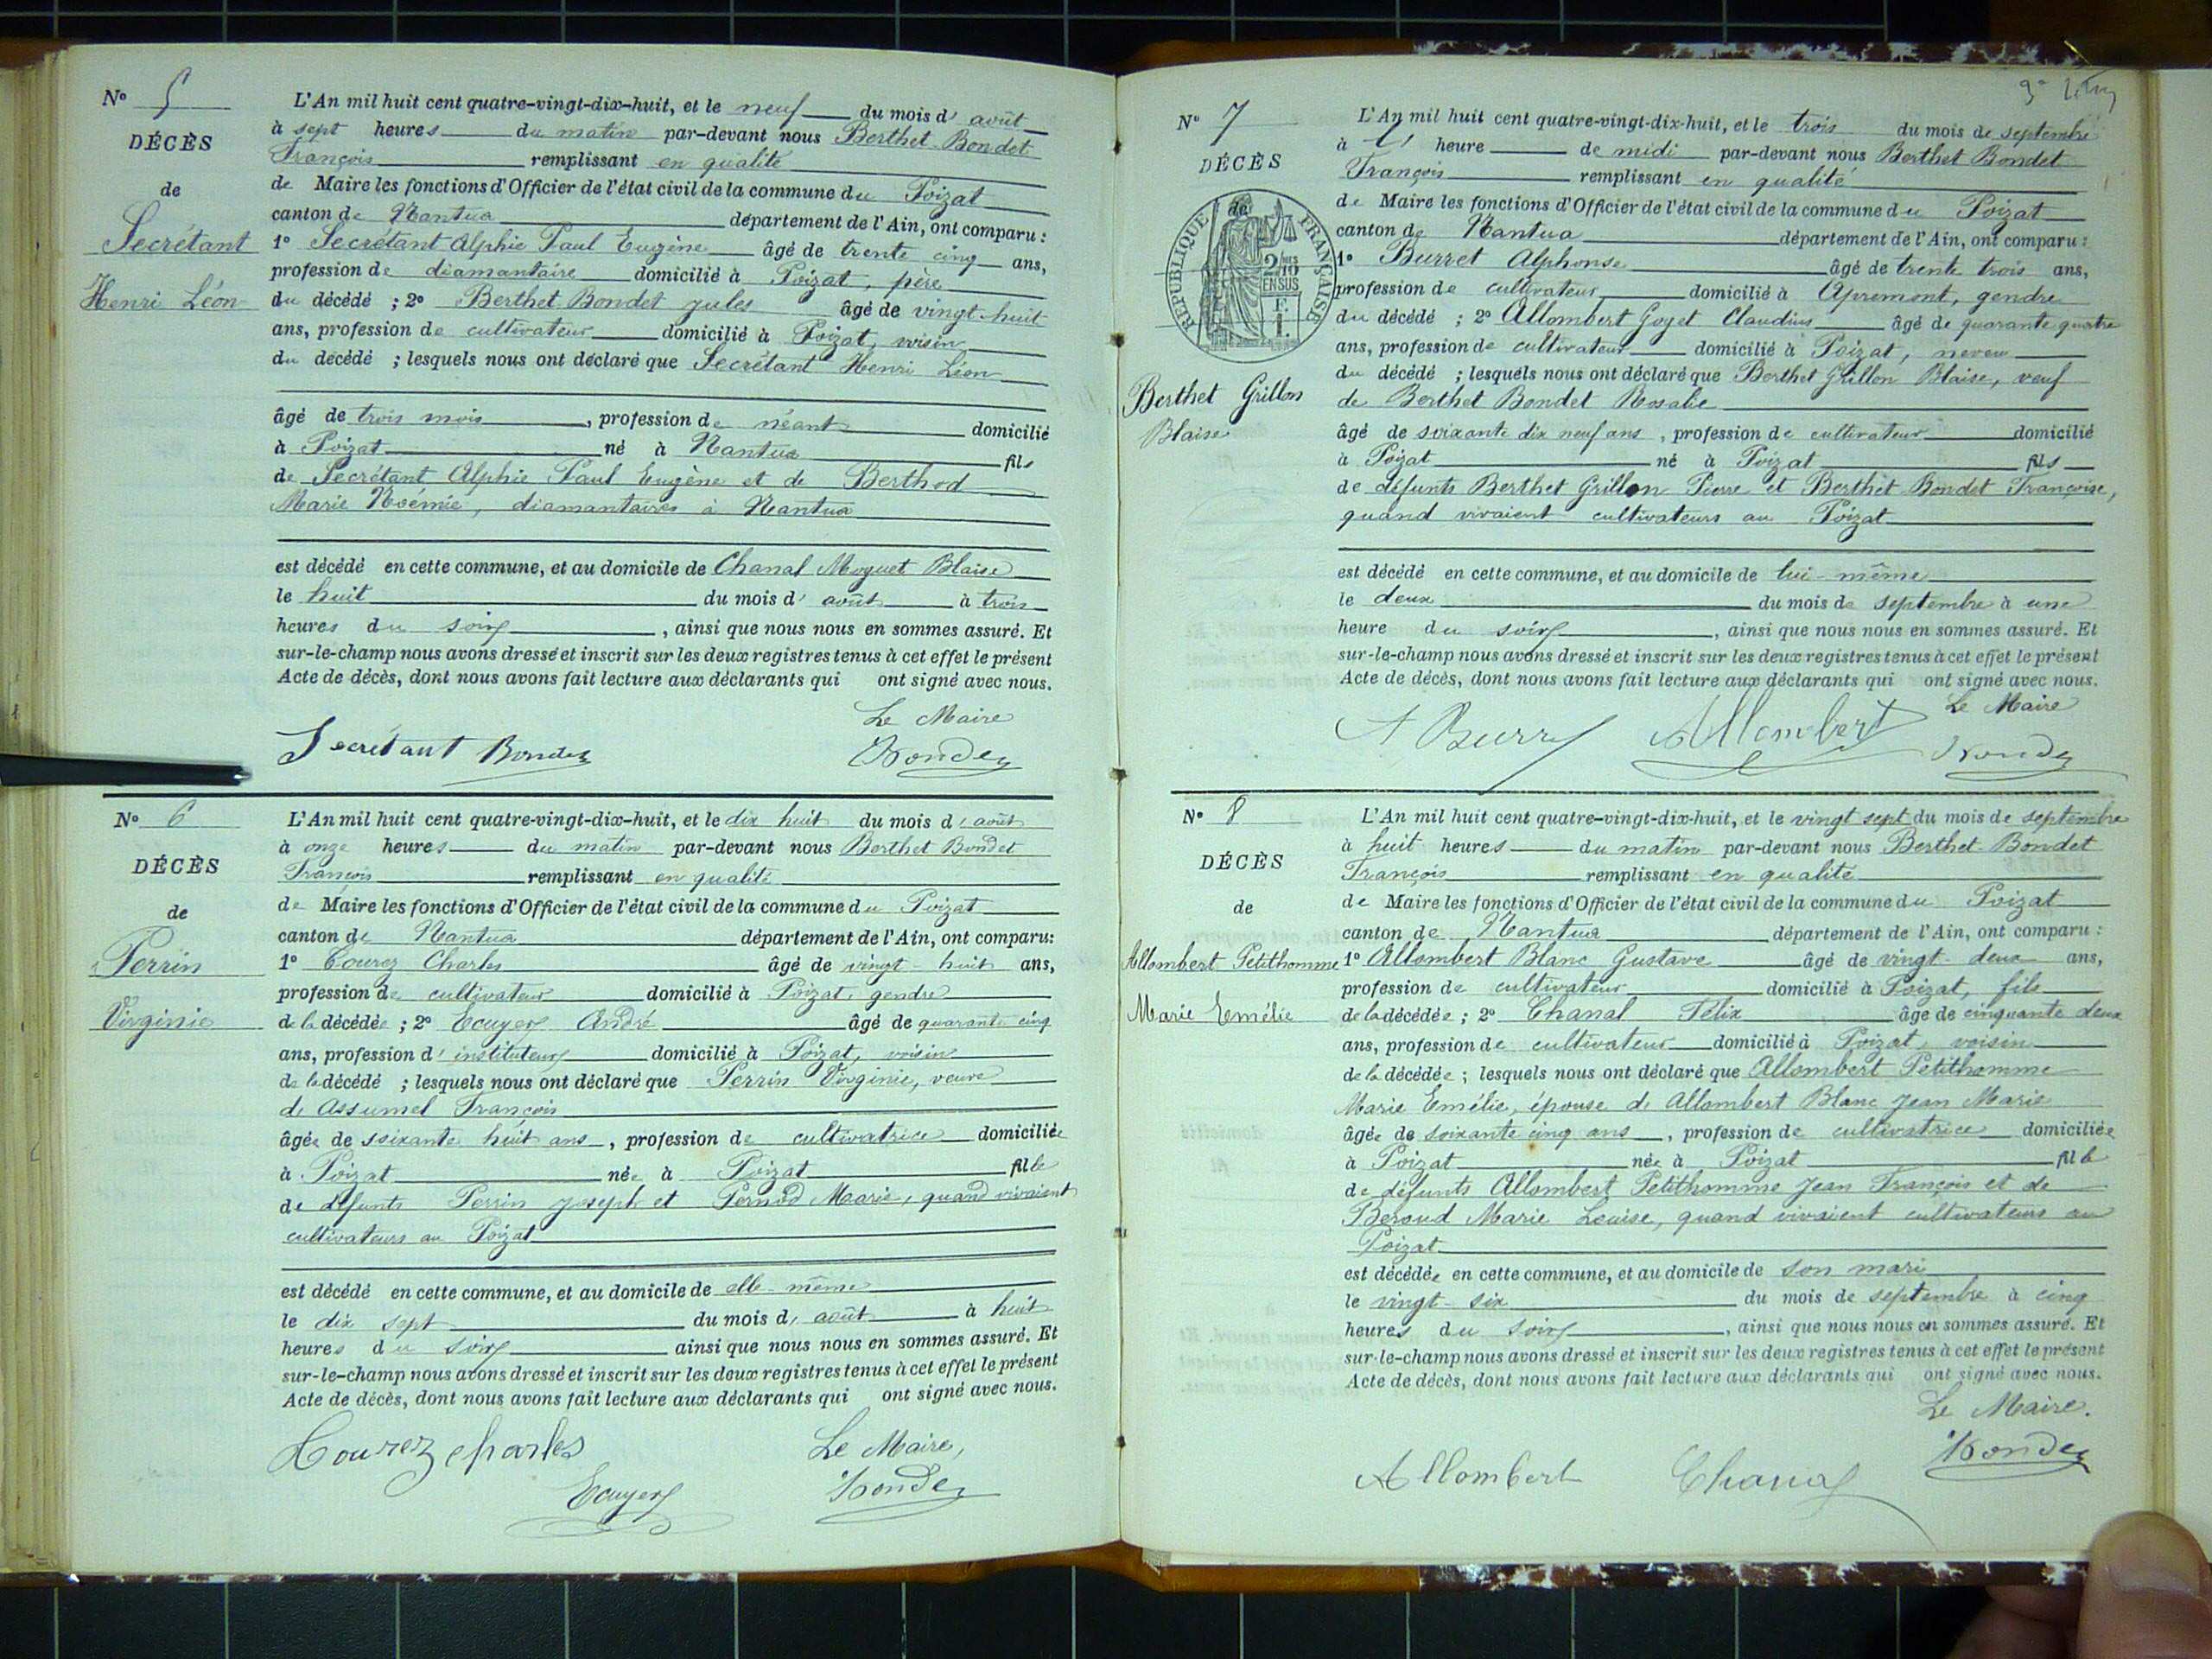 N° 5
DÉCÈS
de
Secrétant
Henri Léon
L'An mil huit cent quatre-vingt-dix-huit, et le neuf du mois d' août
à sept heures du matin par-devant nous Berthet-Bondet
François remplissant en qualité
de Maire les fonctions d'Officier de l'état civil de la commune du Poizat
canton de Nantua département de l'Ain, ont comparu :
1° Secrétant Alphie Paul Eugène âgé de trente cinq ans,
profession de diamantaire domicilié à Poizat, père
du décédé ; 2° Berthet-Bondet Jules âgé de vingt-huit
ans, profession de cultivateur domicilié à Poizat, voisin
du décédé ; lesquels nous ont déclaré que Secrétant Henri Léon
âgé de trois mois, profession de néant domicilié
à Poizat né à Nantua fils
de Secrétant Alphie Paul Eugène et de Berthod
Marie Noémie, diamantaires à Nantua
est décédé en cette commune, et au domicile de Chanal Moguet Blaise
le huit du mois d' août à trois
heures du soir, ainsi que nous nous en sommes assuré. Et
sur-le-champ nous avons dressé et inscrit sur les deux registres tenus à cet effet le présent
Acte de décès, dont nous avons fait lecture aux déclarants qui ont signé avec nous.
Le Maire
Secrétant Bondet Bondet
N° 6
DÉCÈS
de
Perrin
Virginie
L'An mil huit cent quatre-vingt-dix-huit, et le dix huit du mois d' août
à onze heures du matin par-devant nous Berthet Bondet
François remplissant en qualité
de Maire les fonctions d'Officier de l'état civil de la commune du Poizat
canton de Nantua département de l'Ain, ont comparu:
1° Courez Charles âgé de vingt-huit ans,
profession de cultivateur domicilié à Poizat, gendre
de la décédée ; 2° Ecuyer André âgé de quarante cinq
ans, profession d' instituteur domicilié à Poizat, voisin
de la décédé ; lesquels nous ont déclaré que Perrin Virginie, veuve
de Assumel François
âgée de soixante huit ans, profession de cultivatrice domiciliée
à Poizat née à Poizat fille
de défunts Perrin Joseph et Pernod Marie, quand vivaient
cultivateurs au Poizat
est décédé en cette commune, et au domicile de elle-même
le dix sept du mois d' août à huit
heures du soir ainsi que nous nous en sommes assuré. Et
sur-le-champ nous avons dressé et inscrit sur les deux registres tenus à cet effet le présent
Acte de décès, dont nous avons fait lecture aux déclarants qui ont signé avec nous.
Courez charles Le Maire,
Ecuyer Bondet
N° 7
DÉCÈS
de
RÉPUBLIQUE FRANÇAISE
2/10 EN SUS
Berthet Grillon
Blaise
L'An mil huit cent quatre-vingt-dix-huit, et le trois du mois de septembre
à 1 heure de midi par-devant nous Berthet Bondet
François remplissant en qualité
de Maire les fonctions d'Officier de l'état civil de la commune du Poizat
canton de Nantua département de l'Ain, ont comparu :
1° Burret Alphonse âgé de trente trois ans,
profession de cultivateur domicilié à Apremont, gendre
du décédé ; 2° Allombert Goget Claudius âgé de quarante quatre
ans, profession de cultivateur domicilié à Poizat, neveu
du décédé ; lesquels nous ont déclaré que Berthet Grillon Blaise, veuf
de Berthet Bondet Rosalie
âgé de soixante dix neuf ans, profession de cultivateur domicilié
à Poizat né à Poizat fils
de défunts Berthet Grillon Pierre et Berthet Bondet Françoise,
quand vivaient cultivateurs au Poizat
est décédé en cette commune, et au domicile de lui-même
le deux du mois de septembre à une
heure du soir, ainsi que nous nous en sommes assuré. Et
sur-le-champ nous avons dressé et inscrit sur les deux registres tenus à cet effet le présent
Acte de décès, dont nous avons fait lecture aux déclarants qui ont signé avec nous.
Le Maire
A Burret Allombert Bondet
N° 8
DÉCÈS
de
Allombert Petithomme
Marie Emélie
L'An mil huit cent quatre-vingt-dix-huit, et le vingt sept du mois de septembre
à huit heures du matin par-devant nous Berthet-Bondet
François remplissant en qualité
de Maire les fonctions d'Officier de l'état civil de la commune du Poizat
canton de Nantua département de l'Ain, ont comparu :
1° Allombert Blanc Gustave âgé de vingt-deux ans,
profession de cultivateur domicilié à Poizat, fils
de la décédée ; 2° Chanal Félix âgé de cinquante deux
ans, profession de cultivateur domicilié à Poizat, voisin
de la décédée ; lesquels nous ont déclaré que Allombert Petithomme
Marie Emélie, épouse de Allombert Blanc Jean Marie
âgée de soixante cinq ans, profession de cultivatrice domiciliée
à Poizat née à Poizat fille
de défunts Allombert Petithomme Jean François et de
Beroud Marie Louise, quand vivaient cultivateurs au
Poizat
est décédée en cette commune, et au domicile de son mari
le vingt-six du mois de septembre à cinq
heures du soir, ainsi que nous nous en sommes assuré. Et
sur-le-champ nous avons dressé et inscrit sur les deux registres tenus à cet effet le présent
Acte de décès, dont nous avons fait lecture aux déclarants qui ont signé avec nous.
Le Maire.
Allombert Chanal Bondet